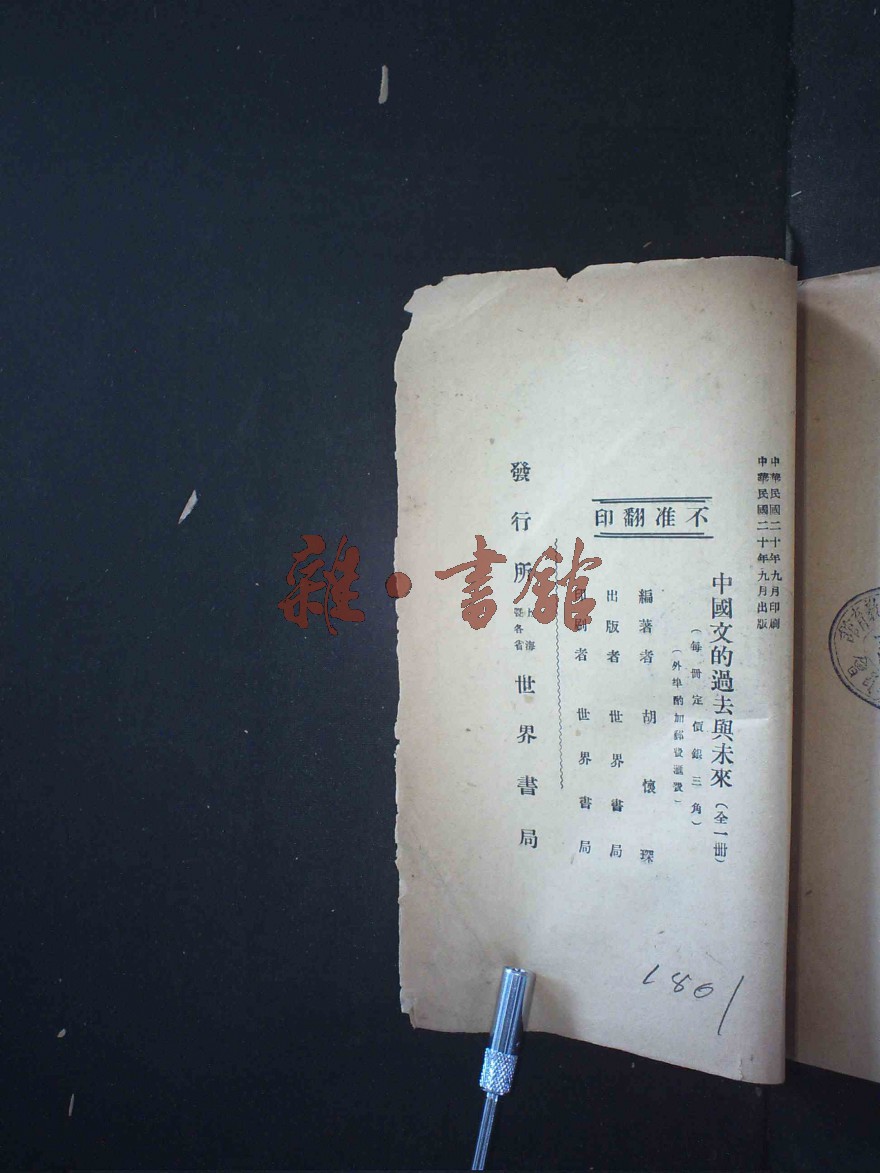 中華民國二十年九月印刷
中華民國二十年九月出版
中國文的過去與未來（全一冊）
（每冊定價銀三角）
（外埠酌加郵費滙費）
不准翻印
編著者 胡懷琛
出版者 世界書局
印刷者 世界書局
發行所 上海 暨各省 世界書局
雜·書館